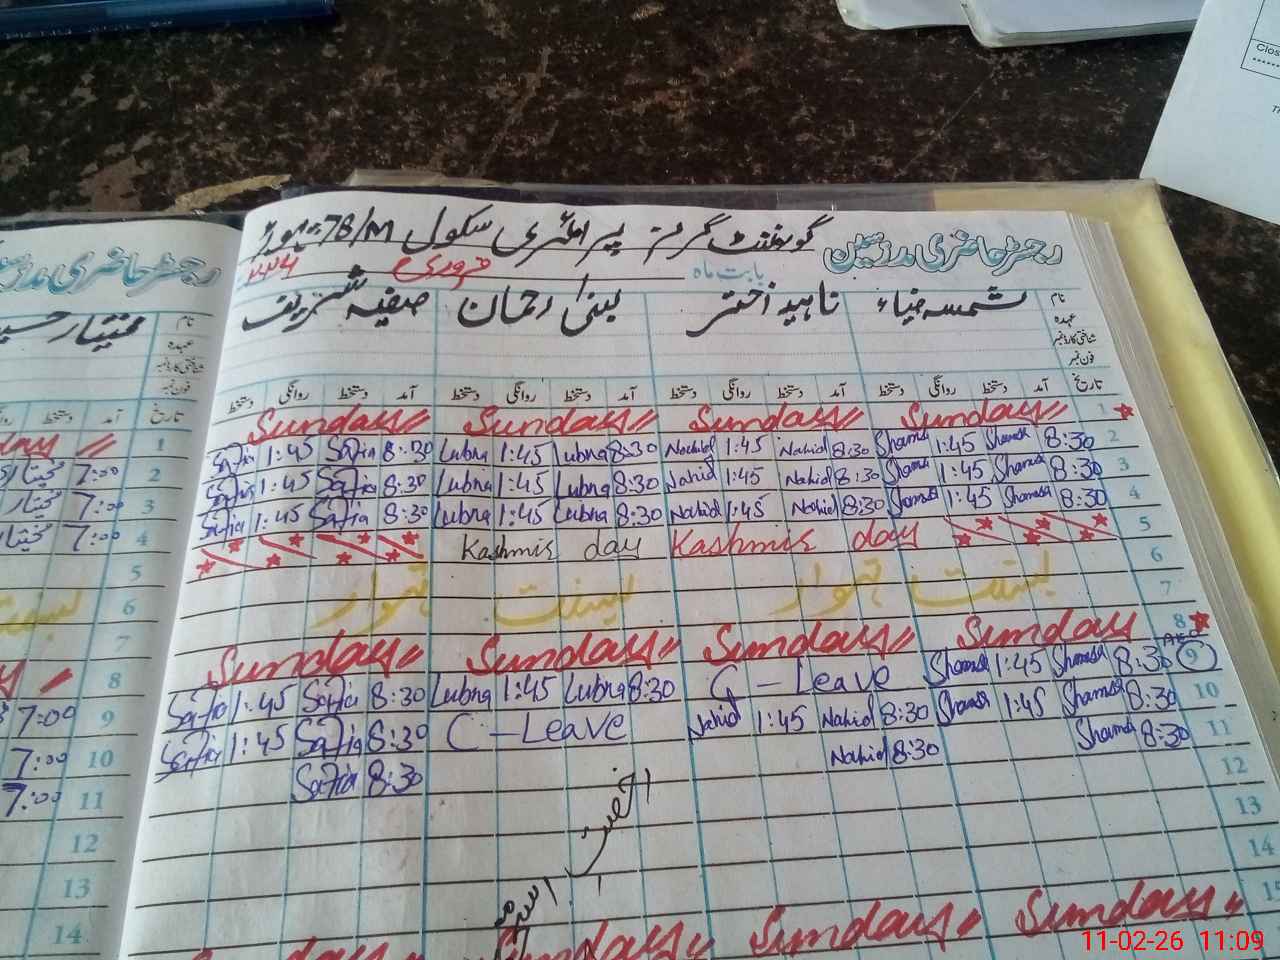 رجسٹر حاضری مدرسین گورنمنٹ گرلز پرائمری سکول 78/M
بابت ماہ فروری
نام شمسہ ضیاء ناہید اختر لبنیٰ رحمان صفیہ شریف
عہدہ
شناختی کارڈ نمبر
فون نمبر
تاریخ آمد دستخط روانگی دستخط آمد دستخط روانگی دستخط آمد دستخط روانگی دستخط آمد دستخط روانگی دستخط
Sunday Sunday Sunday Sunday 1
Safia 1:45 Safia 8:30 Lubna 1:45 Lubna 8:30 Nahid 1:45 Nahid 8:30 Shamsa 1:45 Shamsa 8:30 2
Safia 1:45 Safia 8:30 Lubna 1:45 Lubna 8:30 Nahid 1:45 Nahid 8:30 Shamsa 1:45 Shamsa 8:30 3
Safia 1:45 Safia 8:30 Lubna 1:45 Lubna 8:30 Nahid 1:45 Nahid 8:30 Shamsa 1:45 Shamsa 8:30 4
Kashmir day Kashmir day 5
6
بسنت تہوار بسنت تہوار 7
Sunday Sunday Sunday Sunday 8
Safia 1:45 Safia 8:30 Lubna 1:45 Lubna 8:30 C - Leave Shamsa 1:45 Shamsa 8:30 9
Safia 1:45 Safia 8:30 C - Leave Nahid 1:45 Nahid 8:30 Shamsa 1:45 Shamsa 8:30 10
Safia 8:30 Nahid 8:30 Shamsa 8:30 11
12
13
14
15
Sunday Sunday Sunday
رجسٹر حاضری
نام مختیار
عہدہ
شناختی کارڈ نمبر
فون نمبر
تاریخ آمد دستخط
1
7:00 2
7:00 3
7:00 4
5
6
7
8
7:00 9
7:00 10
7:00 11
12
13
14
11-02-26 11:09